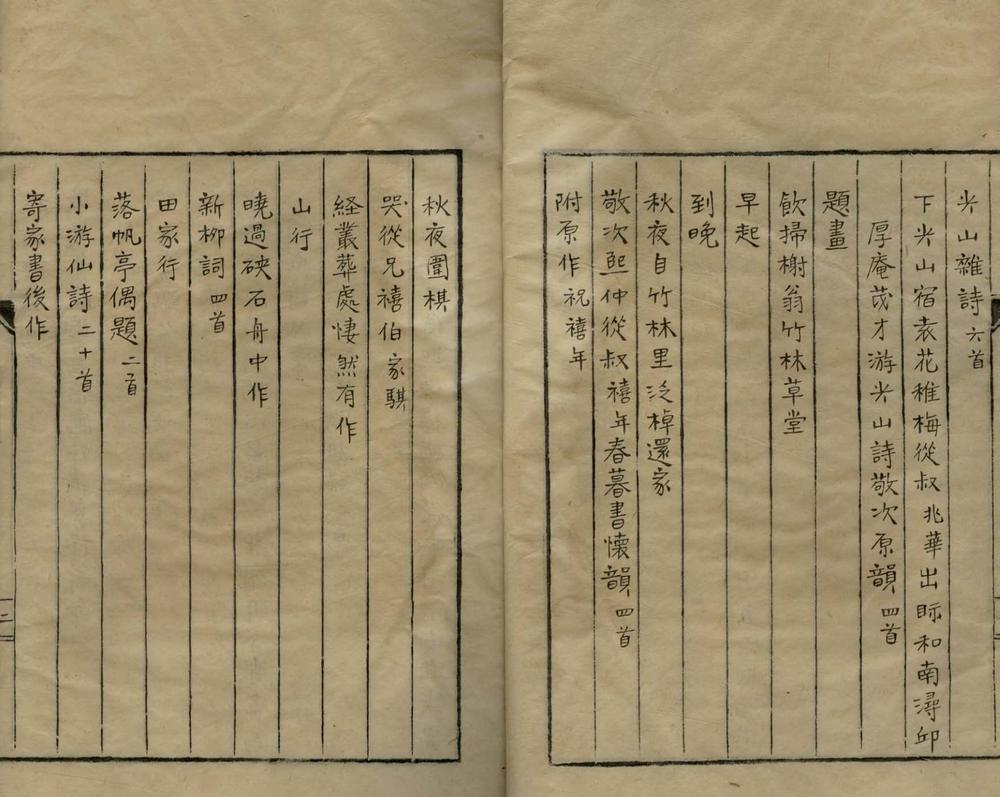 尖山雜詩六首
下尖山宿袁花稚梅從叔兆華出眎和南潯邱
厚庵茂才游尖山詩敬次原韻四首
題畫
飲掃榭翁竹林草堂
早起
到晚
秋夜自竹林里泛棹還家
敬次熙仲從叔禧年春暮書懷韻四首
附原作祝禧年
秋夜圍棋
哭從兄禧伯家騏
経叢葬處悽然有作
山行
曉過硤石舟中作
新栁詞四首
田家行
落帆亭偶題二首
小游仙詩二十首
寄家書後作
二